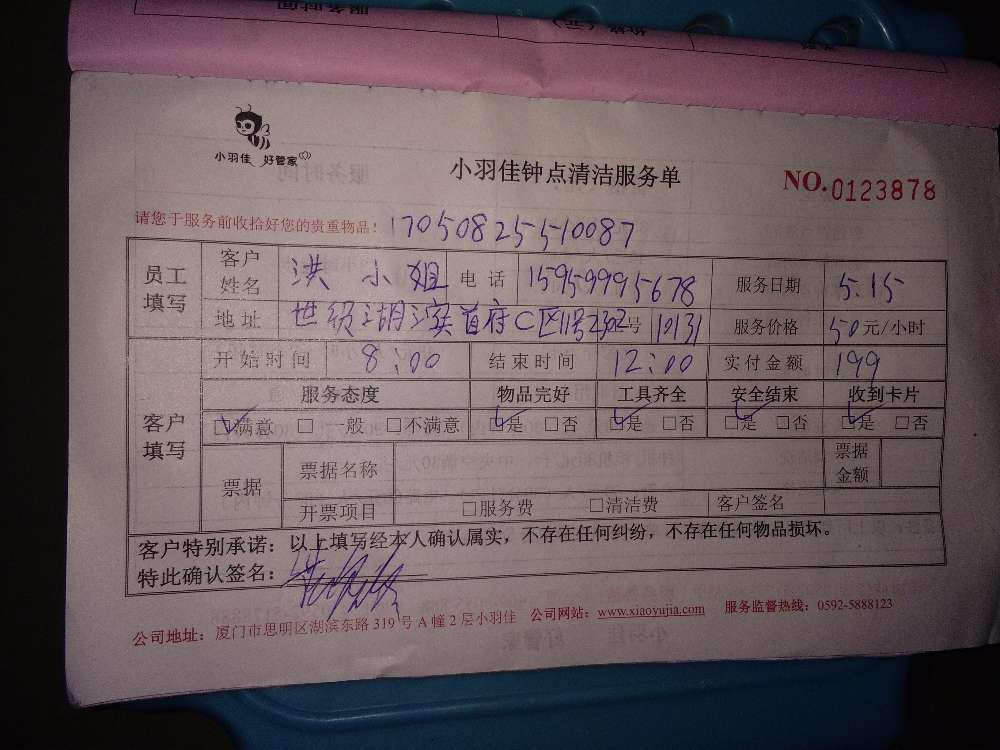 服务时间 价格(元)
小羽佳 好管家
小羽佳钟点清洁服务单
NO.0123878
请您于服务前收拾好您的贵重物品! 17050825510087
员工填写 客户姓名 洪小姐 电话 15959995678 服务日期 5.15
地址 世纪湖滨首府C区11号2302号 10131 服务价格 50元/小时
客户填写 开始时间 8:00 结束时间 12:00 实付金额 199
服务态度 物品完好 工具齐全 安全结束 收到卡片
☑满意 □一般 □不满意 ☑是 □否 ☑是 □否 ☑是 □否 ☑是 □否
票据 票据名称 票据金额
开票项目 □服务费 □清洁费 客户签名
客户特别承诺:以上填写经本人确认属实,不存在任何纠纷,不存在任何物品损坏。
特此确认签名:
公司地址:厦门市思明区湖滨东路319号A幢2层小羽佳 公司网站:www.xiaoyujia.com 服务监督热线:0592-5888123